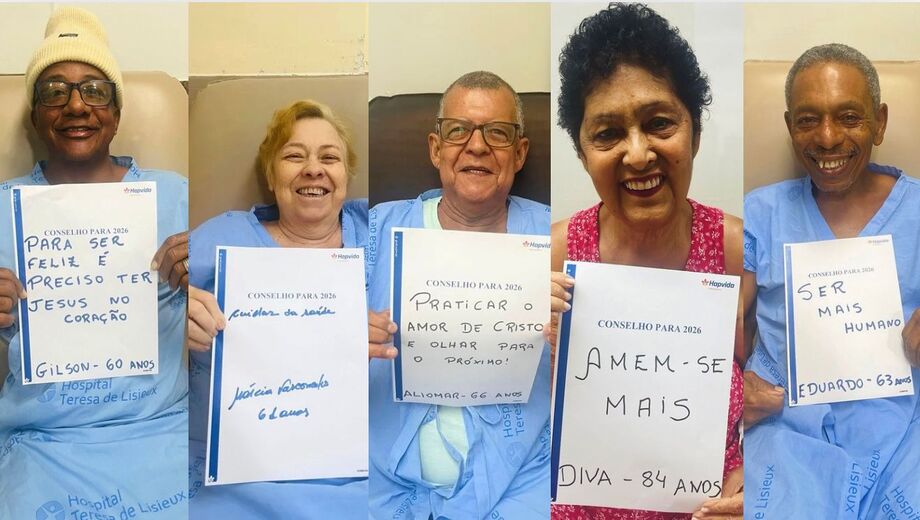 Hapvida
CONSELHO PARA 2026
PARA SER
FELIZ É
PRECISO TER
JESUS NO
CORAÇÃO
GILSON - 60 ANOS
Hospital
Teresa de Lisieux
Hospital
Teresa de Lisieux
Hapvida
CONSELHO PARA 2026
Cuidar da saúde
Márcia Vasconcelos
61 anos
Hapvida
CONSELHO PARA 2026
PRATICAR O
AMOR DE CRISTO
E OLHAR PARA
O PRÓXIMO!
ALIOMAR - 66 ANOS
Hapvida
CONSELHO PARA 2026
AMEM-SE
MAIS
DIVA - 84 ANOS
Hapvida
CONSELHO PARA 2026
SER
MAIS
HUMANO
EDUARDO - 63 ANOS